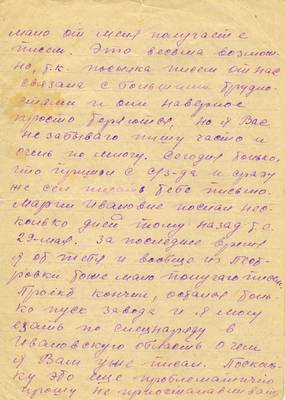 мало от меня получаете
писем. Это весьма возмож-
но, т.к. посылка писем от нас
связана с большими трудно-
стями и они наверное
просто теряются, но я Вас
не забываю пишу часто и
очень по многу. Сегодня только,
что пришел с с/з-да и сразу
же сел писать тебе письмо.
Марии Ивановне послал нес-
колько дней тому назад т.е.
29-мая. За последнее время
я от тебя и вообще из Пет-
ровки тоже мало получаю писем.
Проект кончил, остался толь-
ко пуск завода и я могу
ехать по спецнаряду в
Ивановскую область о чем
я Вам уже писал. Посколь-
ку это еще проблематично
прошу не приостанавливать